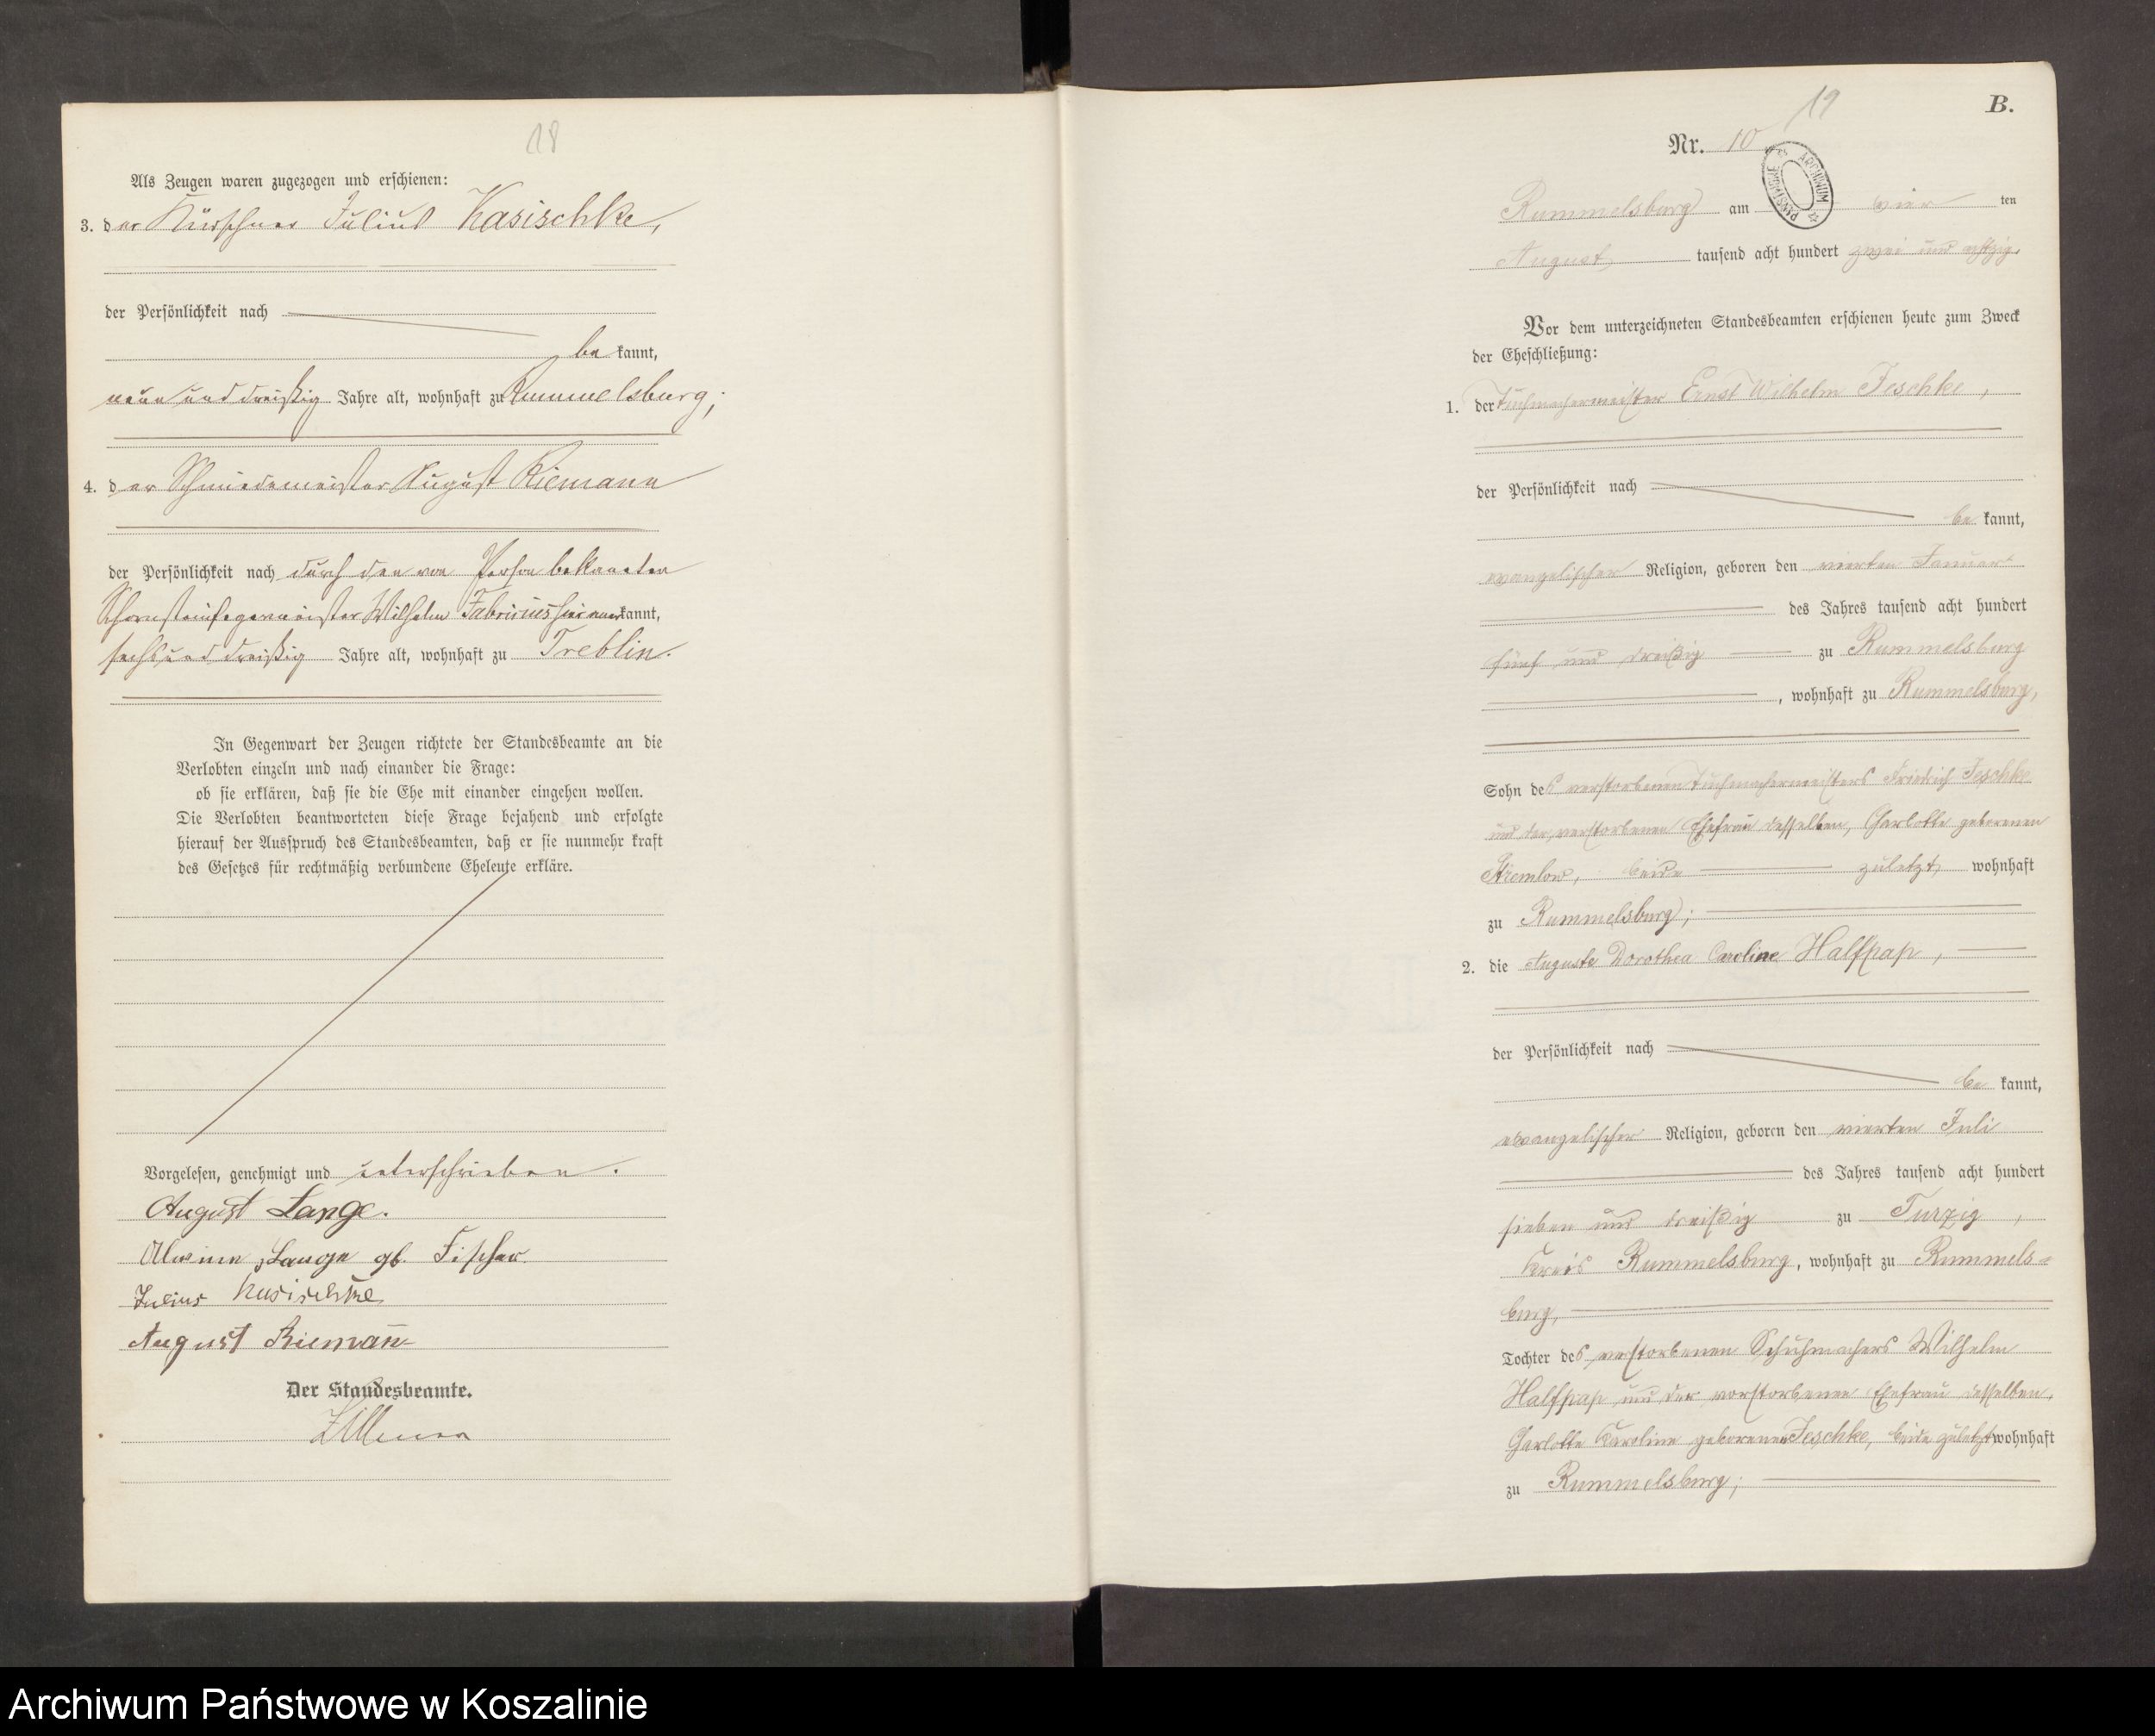 18
Als Zeugen waren zugezogen und erschienen:
3. der Kürschner Julius Kasischke,
der Persönlichkeit nach
be kannt,
neun und dreißig Jahre alt, wohnhaft zu Rummelsburg;
4. der Schmiedemeister August Riemann
der Persönlichkeit nach durch den von Person bekannten
Schornsteinfegermeister Wilhelm Fabricius hier anerkannt,
sechs und dreißig Jahre alt, wohnhaft zu Treblin.
In Gegenwart der Zeugen richtete der Standesbeamte an die
Verlobten einzeln und nach einander die Frage:
ob sie erklären, daß sie die Ehe mit einander eingehen wollen.
Die Verlobten beantworteten diese Frage bejahend und erfolgte
hierauf der Ausspruch des Standesbeamten, daß er sie nunmehr kraft
des Gesetzes für rechtmäßig verbundene Eheleute erkläre.
Vorgelesen, genehmigt und unterschrieben.
August Lange.
Alwine Lange gb. Fischer.
Julius Kasischke
August Riemañ
Der Standesbeamte.
B.
19
Nr. 10
ARCHIWUM PAŃSTWOWE
Rummelsburg am vier ten
August tausend acht hundert zwei und achtzig
Vor dem unterzeichneten Standesbeamten erschienen heute zum Zweck
der Eheschließung:
1. der Tuchmachermeister Ernst Wilhelm Jeschke,
der Persönlichkeit nach
be kannt,
evangelischer Religion, geboren den vierten Januar
des Jahres tausend acht hundert
fünf und dreißig zu Rummelsburg
, wohnhaft zu Rummelsburg,
Sohn des verstorbenen Tuchmachermeisters Friedrich Jeschke
und der verstorbenen Ehefrau desselben, Charlotte geborenen
beide zuletzt wohnhaft
zu Rummelsburg;
2. die Auguste Dorothea Caroline Halfpap,
der Persönlichkeit nach
be kannt,
evangelischer Religion, geboren den vierten Juli
des Jahres tausend acht hundert
sieben und dreißig zu Turzig,
Kreis Rummelsburg, wohnhaft zu Rummels=
burg,
Tochter des verstorbenen Schuhmachers Wilhelm
Halfpap und der verstorbenen Ehefrau desselben,
Charlotte Karoline geborenen Jeschke, beide zuletzt wohnhaft
zu Rummelsburg;
Archiwum Państwowe w Koszalinie